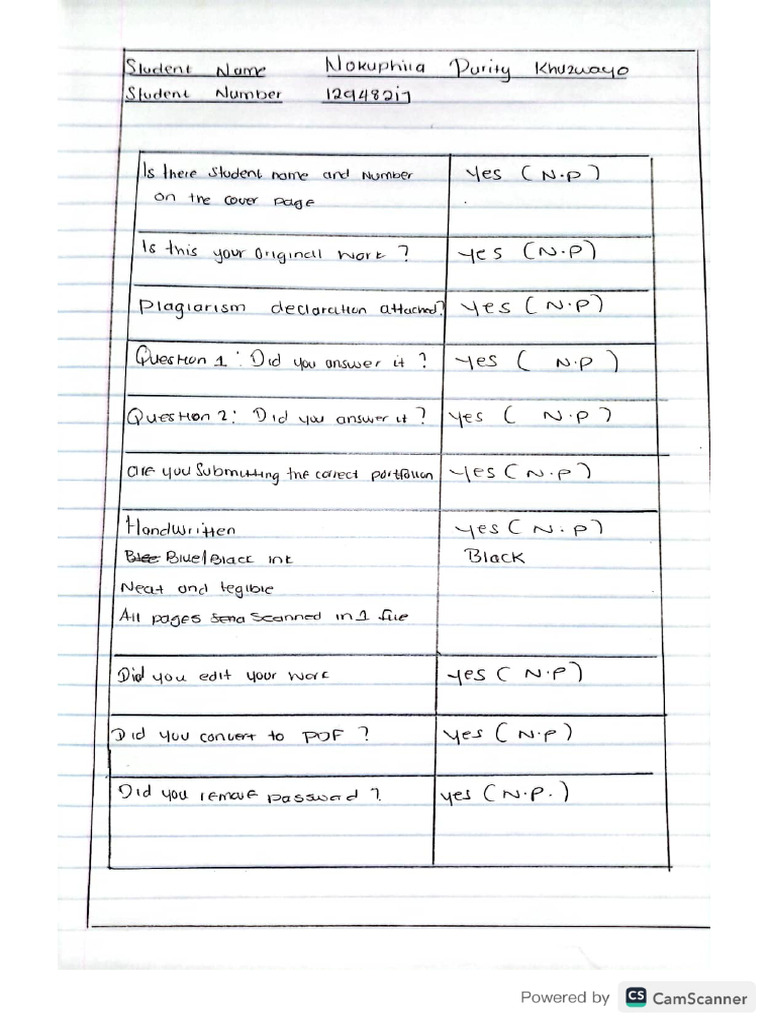 Student Name Nokuphila Purity Khuzwayo
Student Number
Is there student name and Number Yes (N.P)
on the cover page
Is this your Original work ? yes (N.P)
Plagiarism declaration attached? Yes (N.P)
Question 1 : Did you answer it ? Yes ( N.P )
Question 2 : Did you answer it ? Yes ( N.P )
are you Submitting the correct Yes (N.P)
Handwritten Yes (N.P)
Blue/Black ink Black
Neat and legible
All pages scanned in 1 file
Did you edit your work Yes (N.P)
Did you convert to PDF ? Yes (N.P)
Did you remove password ? yes (N.P.)
Powered by CS CamScanner